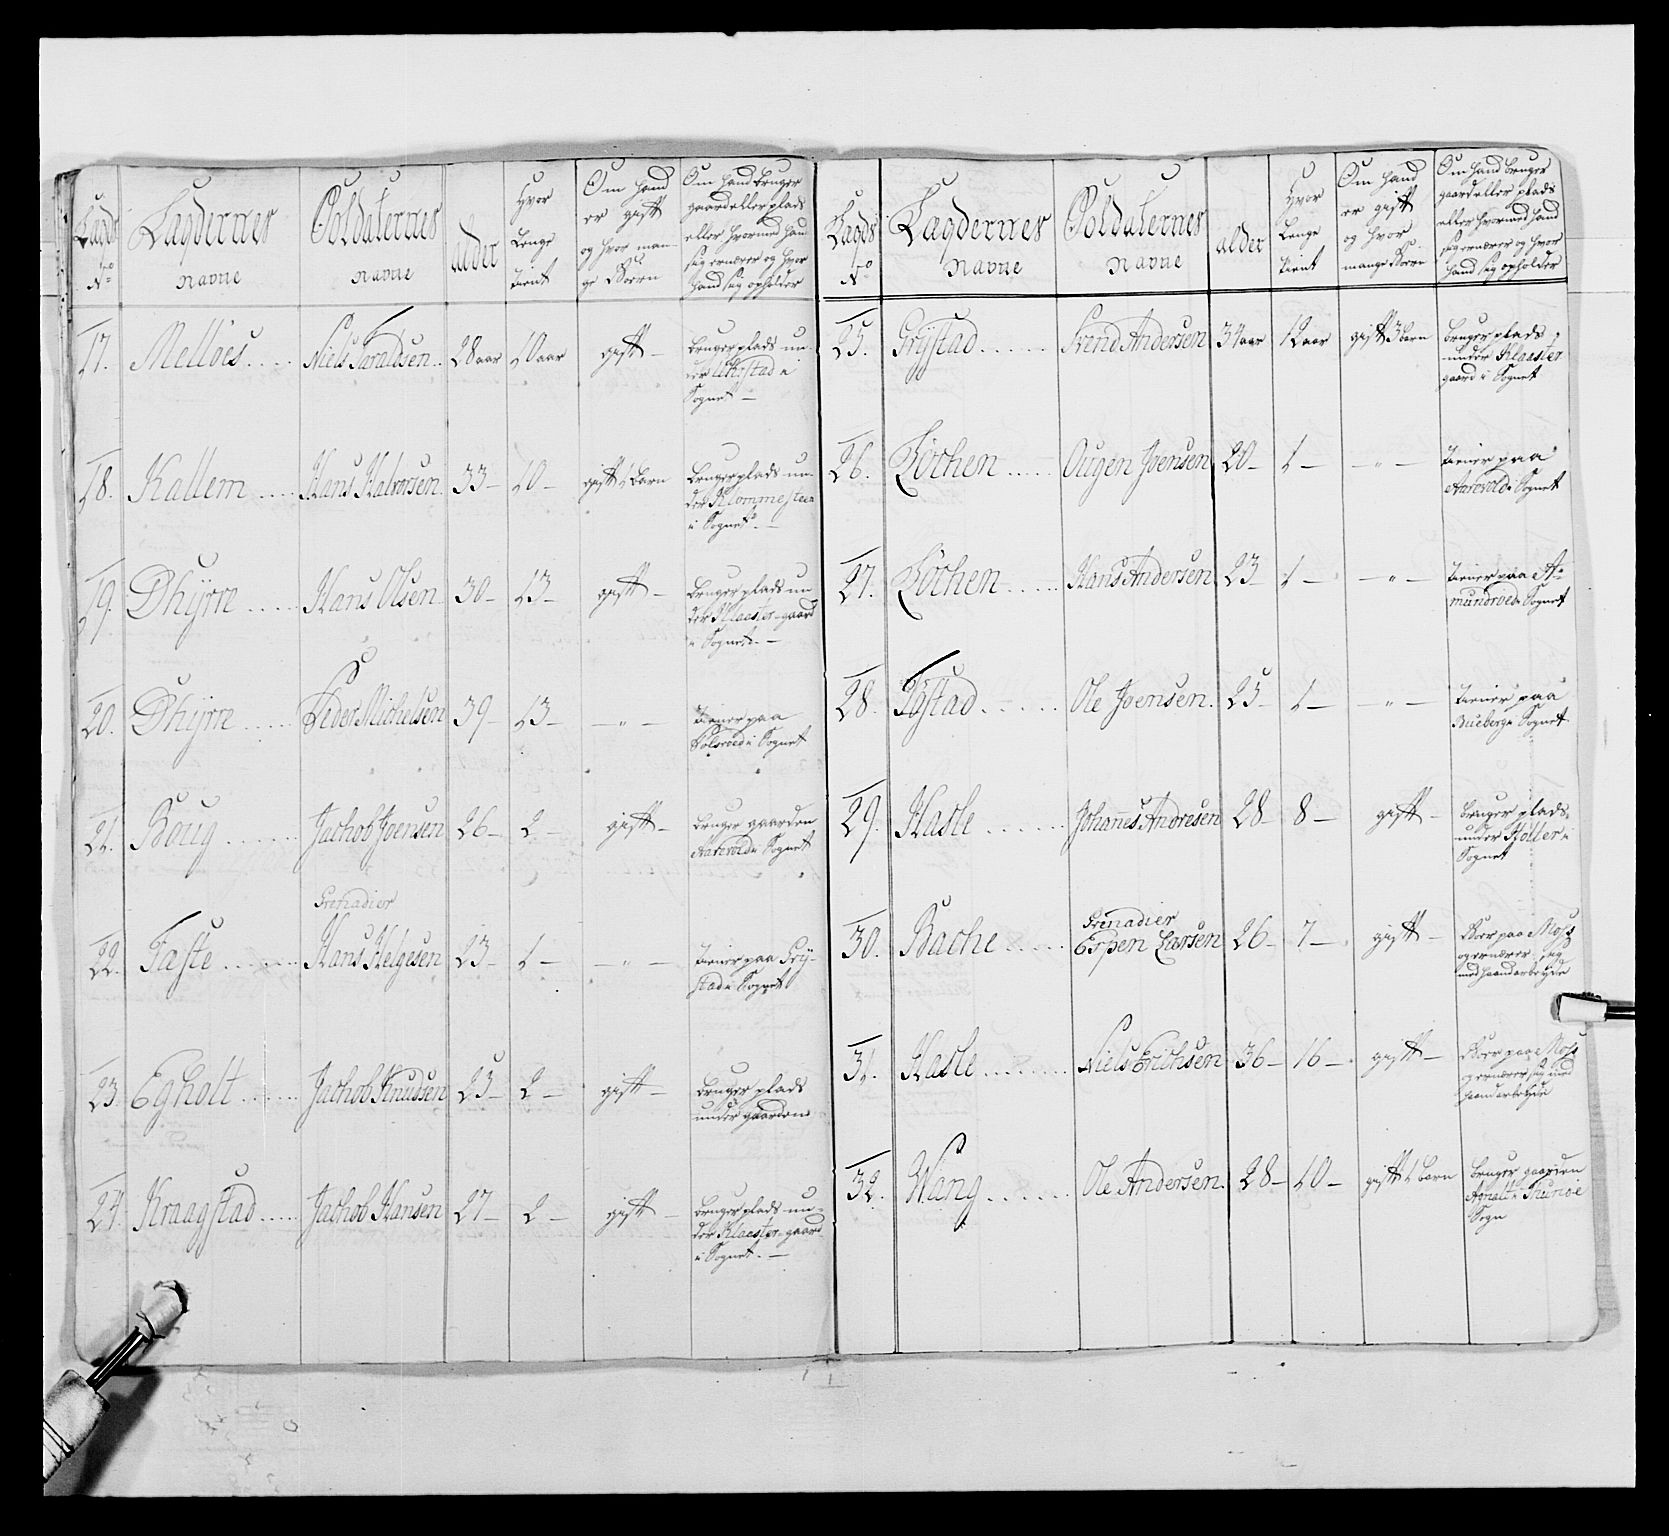 Lagds
No
Lagdernes
Navne
Soldaternes
Navne
alder
Hvor
Lenge
tient
Om hand
er gift
og hvor man-
ge Børn
Om hand bruger
gaard eller plads
eller hvormed hand
sig ernærer og hvor
hand sig opholder
17. Melløes Niels Haraldsen 28 aar 10 aar gift
bruger plads un-
der i
Sognet
18. Kallem Hans Halvorsen 33 10 gift 1 barn
bruger plads un-
der Klommesteen
i Sognet
19. Dhyrre Hans Olsen 30 13 gift
bruger plads un-
der Klaester-gaard
i Sognet
20. Dhyrre Peder Michelsen 39 13 "
tiener paa
i Sognet
21. Boug Jachob Joensen 26 2 gift
bruger gaarden
Aarevold i Sognet
Grenadier
22. Faste Hans Helgesen 23 1 "
tiener paa Gry-
stad i Sognet
23. Egholt Jachob Knudsen 25 2 gift
bruger plads
under gaarden
24. Kraagstad Jachob Hansen 27 2 gift
bruger plads un-
der Klaester-gaard
i Sognet
Lagds
No
Lagdernes
Navne
Soldaternes
Navne
alder
Hvor
Lenge
tient
Om hand
er gift
og hvor
mange Børn
Om hand bruger
gaard eller plads
eller hvormed hand
sig ernærer og hvor
hand sig opholder
25. Grystad Svend Andersen 34 aar 12 aar gift 3 børn
bruger plads
under Klaester
gaard i Sognet
26. Løchen Ougen Joensen 20 1 "
tiener paa
Aarevold i Sognet
27. Løchen Hans Andersen 23 1 "
tiener paa A-
mundroed i Sognet
28. Ole Joensen 25 1 "
tiener paa
Bueberg i Sognet
29. Hasle Johanes Andresen 28 8 gift
bruger plads
under Holler i
Sognet
Grenadier
30. Bache Espen Larsen 26 7 gift
Boer paa Moss
og ernærer sig
med haandarbeyde
31. Hasle Niels Erichsen 36 16 gift
Boer paa Moss
og ernærer sig med
haandarbeyde
32. Wang Ole Andersen 28 10 gift 1 barn
bruger gaarden
i Thunøe
Sogn